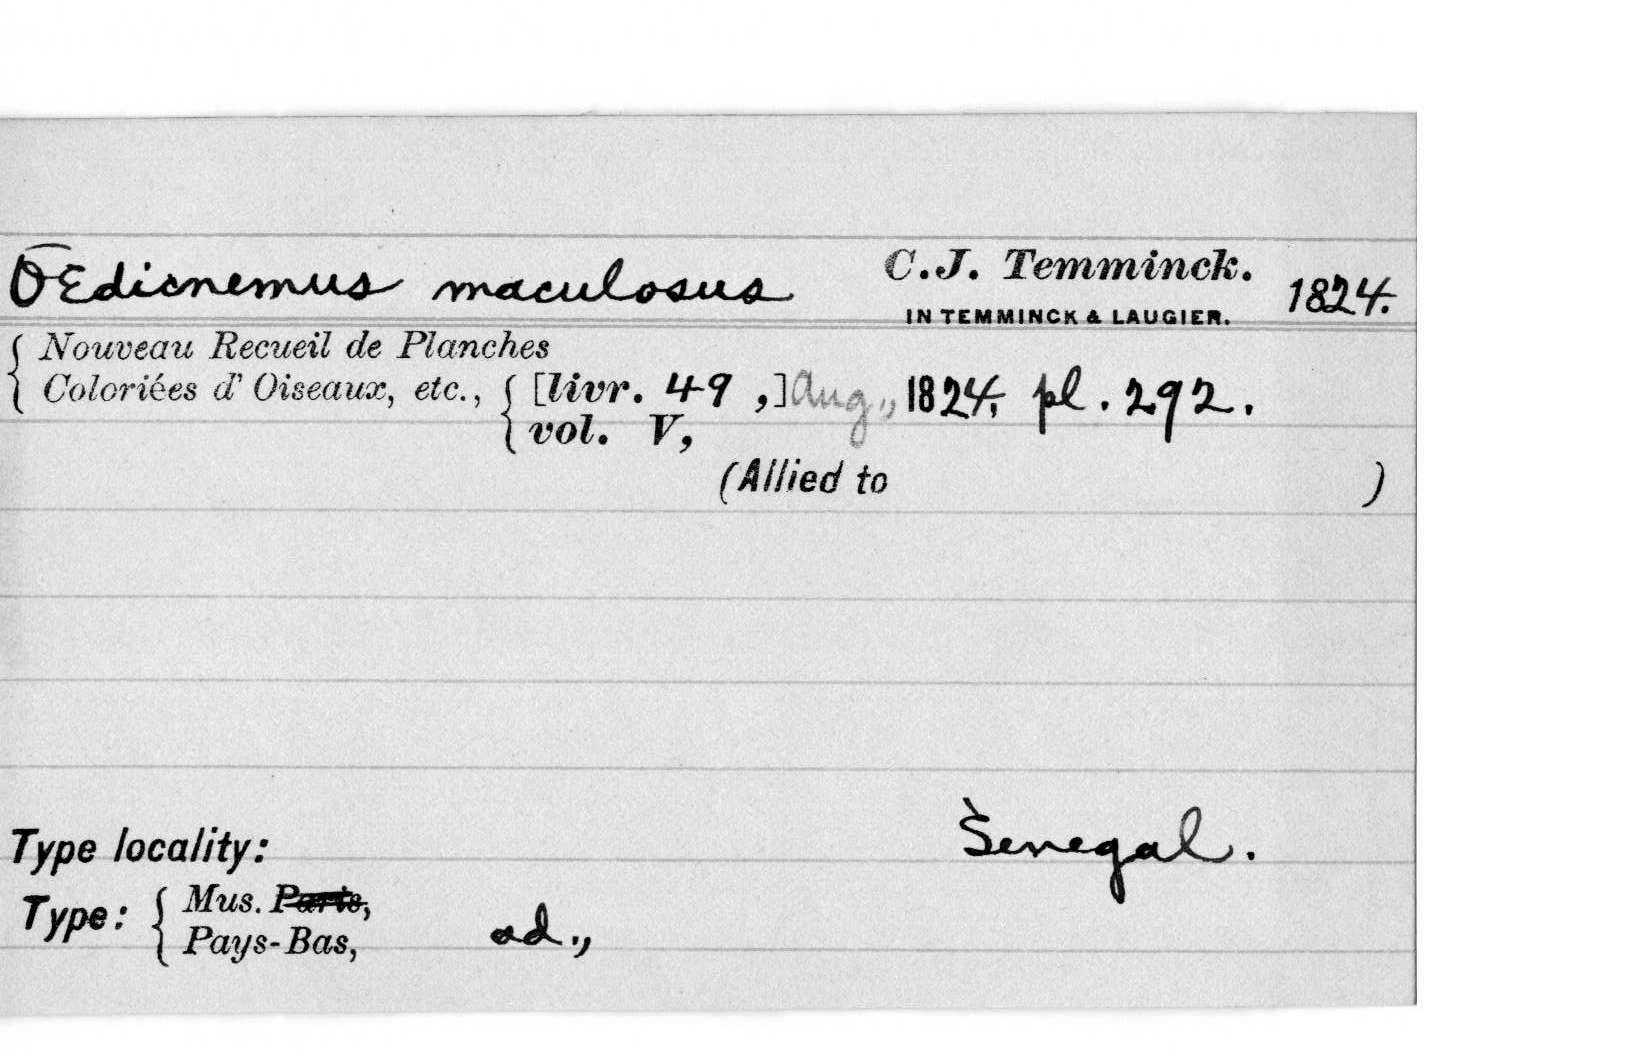 OEdicnemus maculosus C.J. Temminck. 1824.
IN TEMMINCK & LAUGIER.
Nouveau Recueil de Planches
Coloriées d'Oiseaux, etc., [livr. 49 ,] Aug., 1824, pl. 292.
vol. V,
(Allied to )
Type locality: Senegal.
Type: Mus. Paris,
Pays-Bas, ad.,